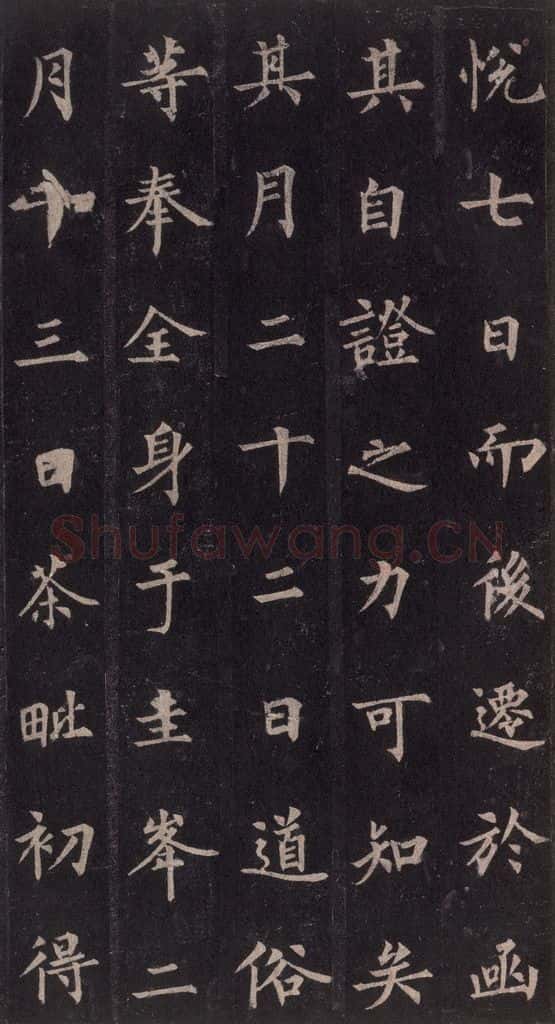 悦七日而後遷於函
其自證之力可知矣
其月二十二日道俗
等奉全身于圭峯二
月十三日茶毗初得
Shufawang.CN